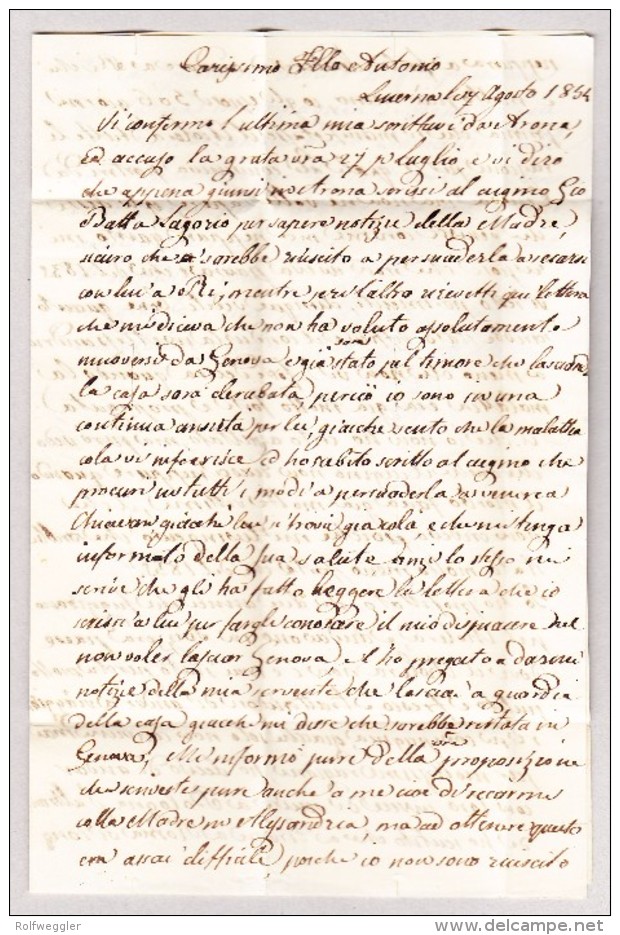 Carissimo Fllo Antonio
Lucerna li 7 Agosto 1854
Vi confermo l'ultima mia scrittavi da Arona,
Ed accuso la grata vra 27 p Luglio, e vi dirò
che appena giunsi in Arona scrissi al cugino Gio
Batta Lagorio per sapere notizie della Madre,
sicuro che sarebbe riuscito a persuaderla a recarsi
con lui a mentre per l'altro ricevetti qui lettera
che mi diceva che non ha voluto assolutamente
muoversi da Genova e già stato pel timore che lasciando
la casa sarà derubata, perciò io sono in una
continua ansietà per lei, giacché sento che la malattia
cola vi infierisce ed ho subito scritto al cugino che
procuri in tutti i modi a persuaderla a venire a
Chiavari giacché lui si trova già colà, e che mi tenga
informato della sua salute anzi lo stesso mi
scrive che gli ha fatto leggere la lettera che io
scrissi a lui per fargli conoscere il mio dispiacere nel
non voler lasciar Genova, e l'ho pregato a darmi
notizie della mia servente che lasciai a guardia
della casa giacché mi disse che sarebbe restata in
Genova, Me informò pure della vra proposizione
che scriveste pure anche a me cioè di recarmi
colla Madre in Alessandria, ma ad ottenere questo
era assai difficile, poiché io non sono riuscito
Rolfweggler
www.delcampe.net